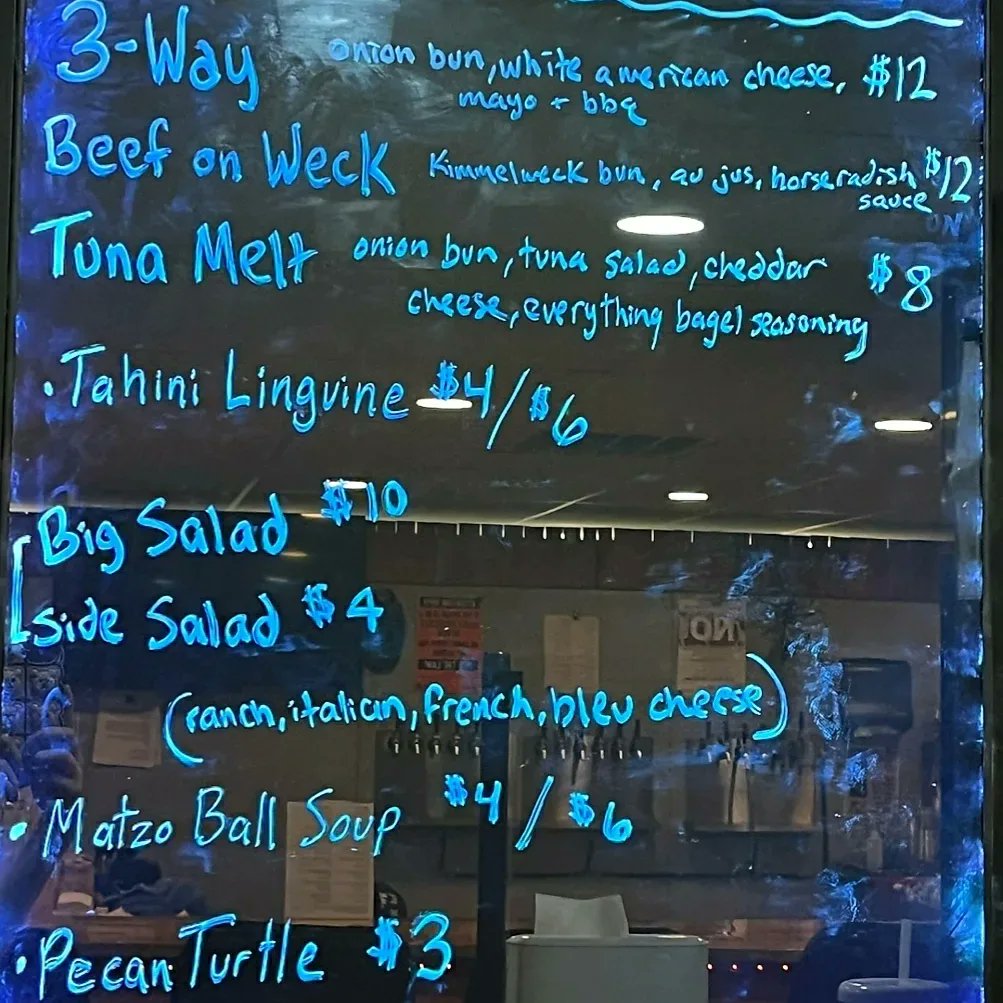 3-Way onion bun, white american cheese, $12
mayo + bbq
Beef on Weck Kimmelweck bun, au jus, horseradish $12
sauce
Tuna Melt onion bun, tuna salad, cheddar $8
cheese, everything bagel seasoning
• Tahini Linguine $4/$6
Big Salad $10
Side Salad $4
(ranch, italian, french, bleu cheese)
• Matzo Ball Soup $4/$6
• Pecan Turtle $3